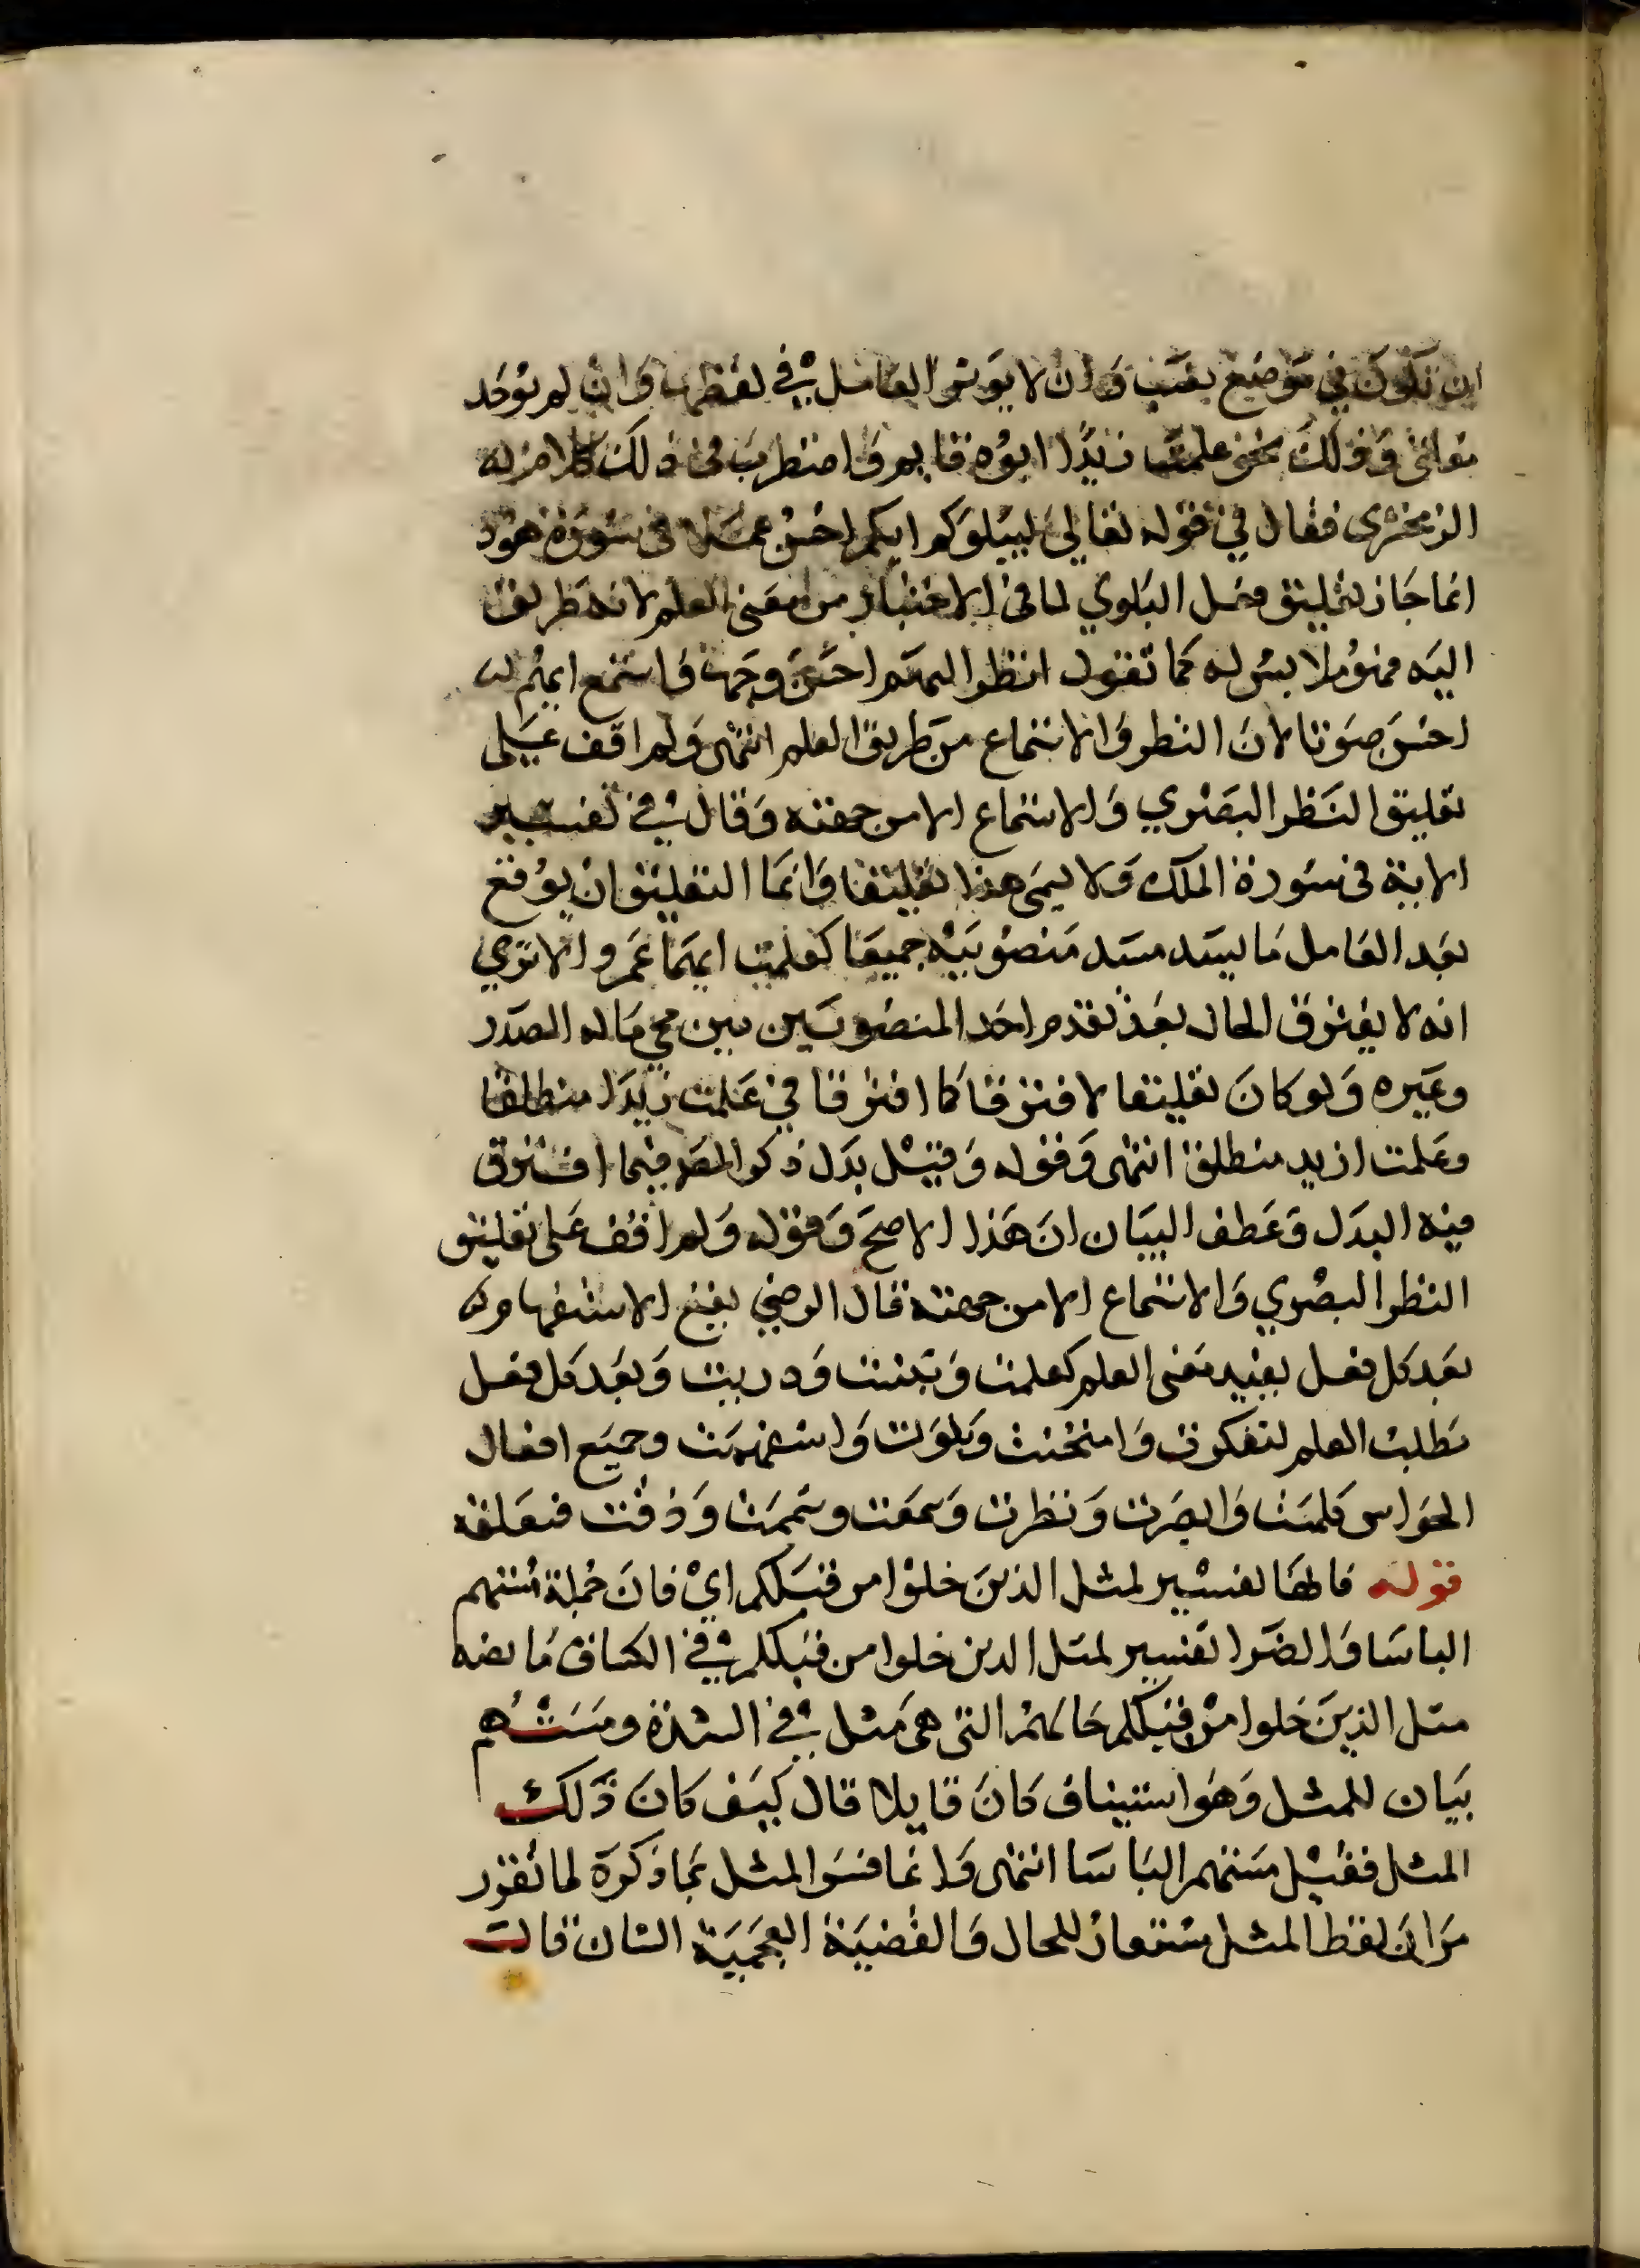 ان تكون في موضع نصب وان لا يوثر العامل في لفظها وان لم يوجد
تعليق وذلك نحو علمت زيدا ابوه قايم واضطرب في ذلك كلام
الزمخشري فقال في قوله تعالى ليبلوكم ايكم احسن عملا في سورة هود
انما جاز تعليق فعل البلوي لما في الاختبار من معنى العلم لانه طريق
اليه فهو ملابس له كما تقول انظر ايهم احسن وجها واستمع ايهم
احسن صوتا لان النظر والاستماع من طريق العلم انتهى ولم اقف على
تعليق النظر البصري والاستماع الا من جهته وقال في تفسير
الاية في سورة الملك ولا يسمى هذا تعليقا وانما التعليق ان يوقع
بعد العامل ما يسد مسد منصوبيه جميعا كعلمت ايهما عمرو الا ترى
انه لا يفترق الحال بعد تقدم احد المنصوبين بين مجي ماله الصدر
وغيره ولو كان تعليقا لافترقا كما افترقا في علمت زيدا منطلقا
وعلمت ازيد منطلق انتهى وقوله وقيل بدل ذكر المص فيما افترق
فيه البدل وعطف البيان ان هذا الاصح وقوله ولم اقف على تعليق
النظر البصري والاستماع الا من جهته قال الرضي يقع الاستفهام
بعد كل فعل يفيد معنى العلم كعلمت وتبينت ودريت وبعد كل فعل
يطلب العلم كتفكرت وامتحنت وبلوت واستفهمت وجميع افعال
الحواس كلمست وابصرت ونظرت وسمعت وشممت وذقت فتعلقه
قوله فانها تفسير لمثل الذين خلوا من قبلكم اي فان جملة مستهم
الباسا والضرا تفسير لمثل الذين خلوا من قبلكم في الكشاف ما نصه
مثل الذين خلوا من قبلكم حالهم التي هي مثل في الشدة ومستهم
بيان للمثل وهو استيناف كان قايلا قال كيف كان ذلك
المثل فقيل مستهم الباسا انتهى وانما فسر المثل بما ذكره لما تقرر
من ان لفظ المثل مستعار للحال والقضية العجيبة الشان قالت